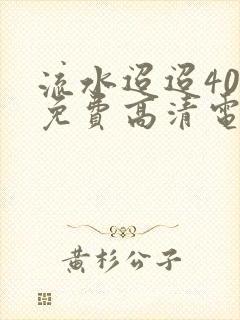 流水迢迢40
免费高清電
黄杉公子